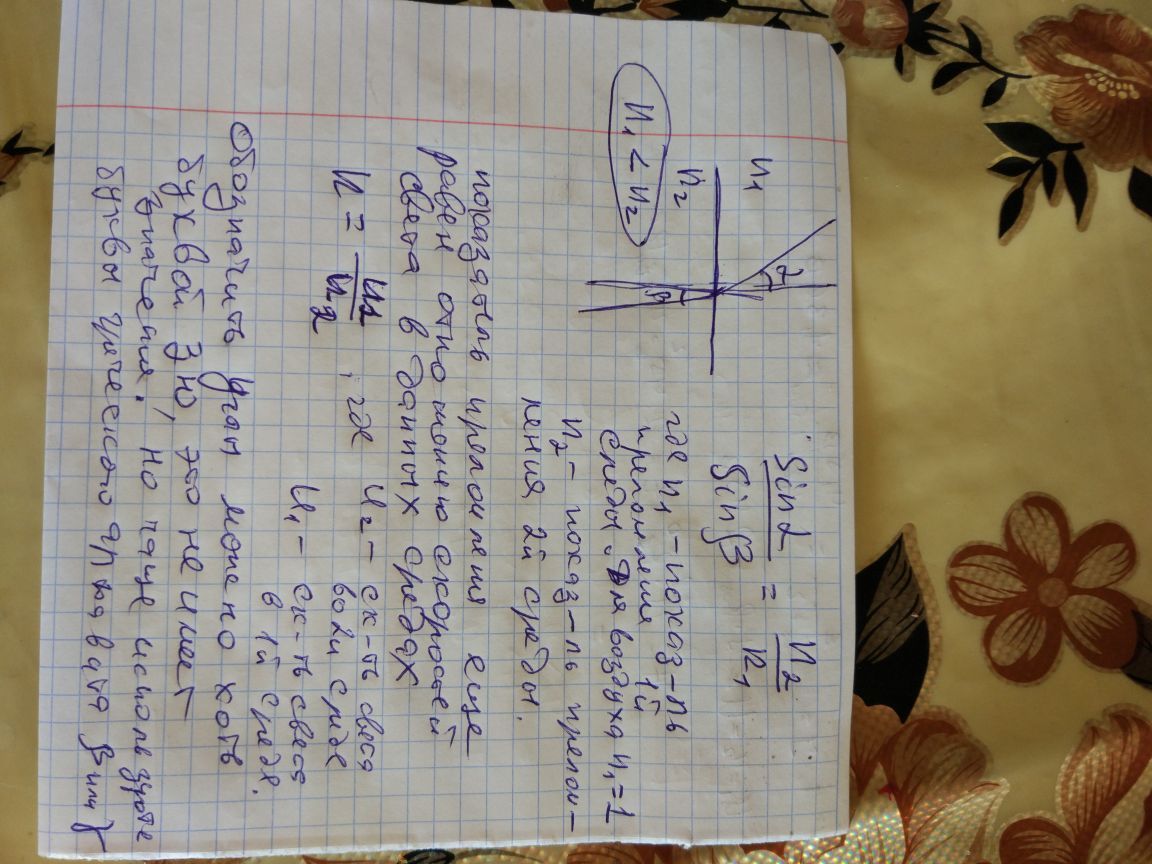 n₁
n₂
n₁ < n₂
α
β
sin α / sin β = n₂ / n₁
где n₁ - показ-ль
преломления 1й
среды. Для воздуха n₁=1
n₂ - показ-ль прелом-
ления 2й среды.
показатель преломления еще
равен отношению скоростей
света в данных средах
n = u₁ / u₂ , где u₂ - ск-ть света
во 2й среде
u₁ - ск-ть света
в 1й среде.
Обозначить угол можно хоть
буквой З ю, это не имеет
значения. Но чаще используют
буквы греческого алфавита β или γ